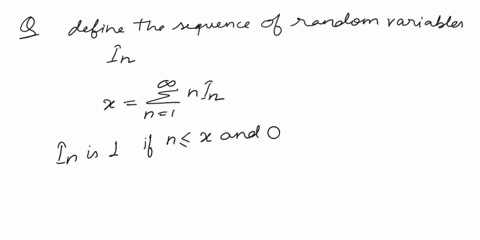 Q define the sequence of random variables
În
x = ∞ Σ n=1 n În
În is 1 if n ≤ x and 0